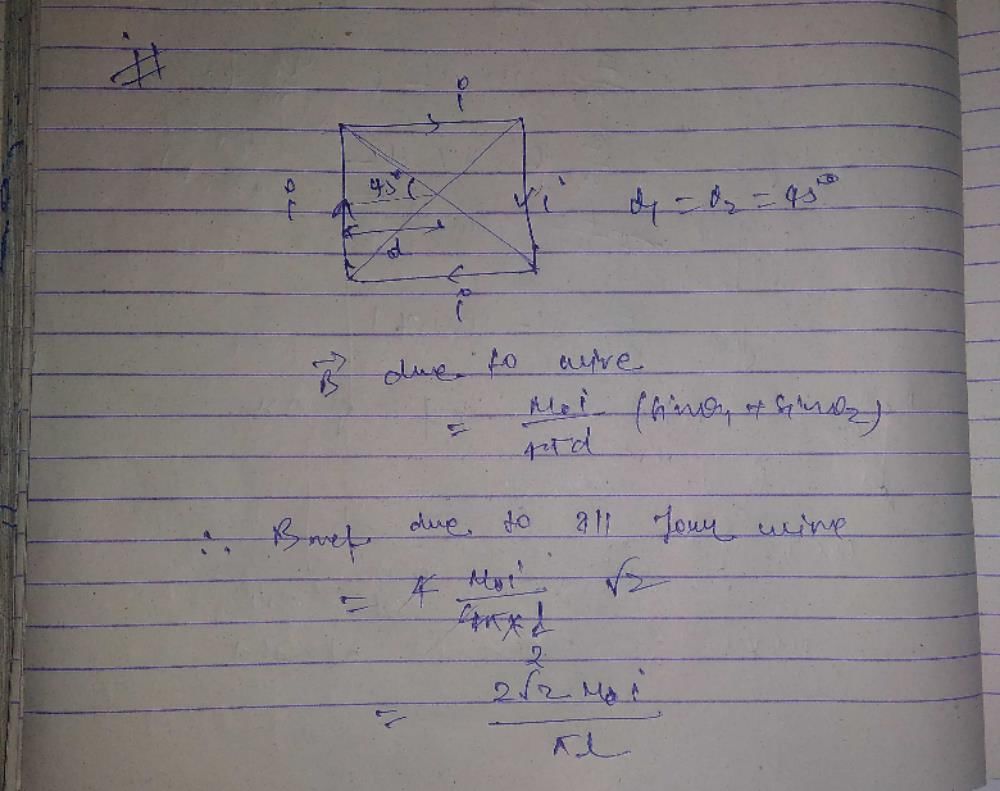 #
i
45°
i
i
d
i
θ₁ = θ₂ = 45°
B⃗ due to wire
= μ₀i / 4πd (sinθ₁ + sinθ₂)
∴ Bnet due to all four wire
= 4 μ₀i / 4π × l/2 √2
= 2√2 μ₀ i / πl